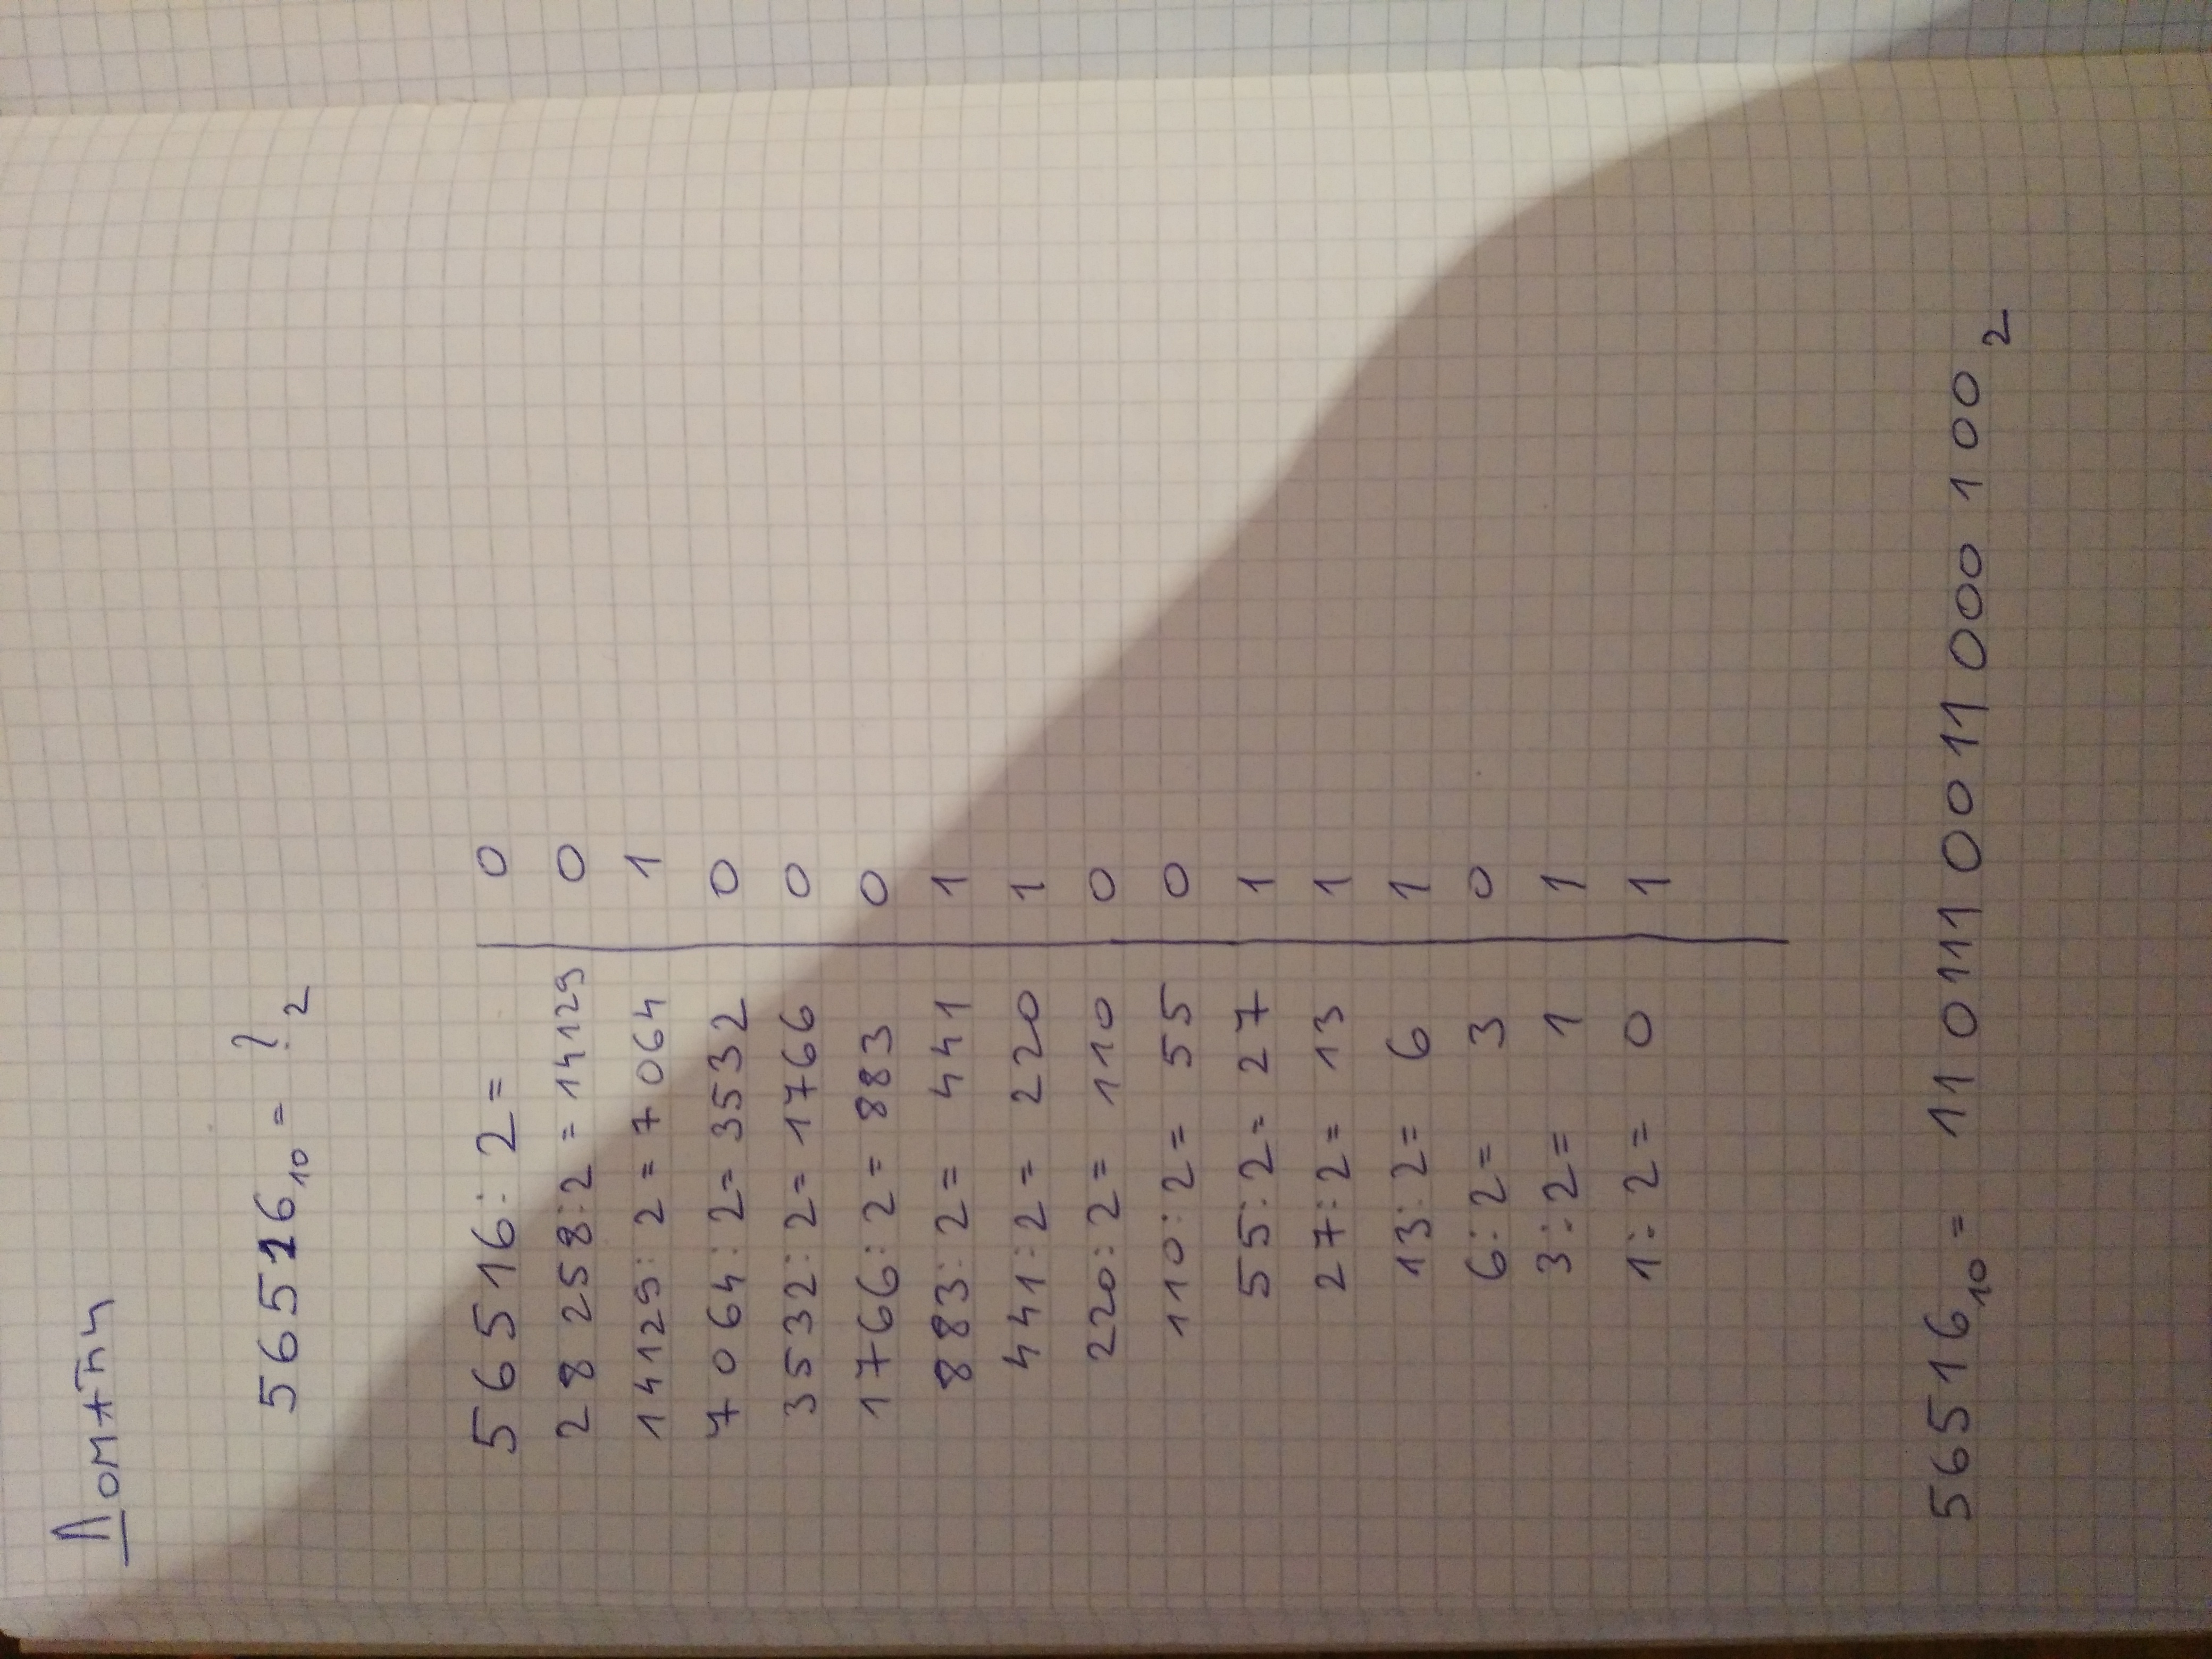 Домаћи
56516₁₀ = ?₂
56516 : 2 = 0
28258 : 2 = 14129 0
14129 : 2 = 7064 1
7064 : 2 = 3532 0
3532 : 2 = 1766 0
1766 : 2 = 883 0
883 : 2 = 441 1
441 : 2 = 220 1
220 : 2 = 110 0
110 : 2 = 55 0
55 : 2 = 27 1
27 : 2 = 13 1
13 : 2 = 6 1
6 : 2 = 3 0
3 : 2 = 1 1
1 : 2 = 0 1
56516₁₀ = 11 0111 0011 000 100₂